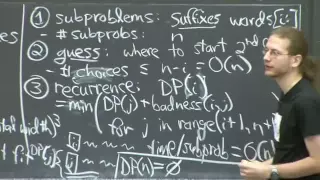 ① subproblems: suffixes words[i:]
- # subprobs: n
② guess: where to start 2nd
- # choices ≤ n-i = O(n)
③ recurrence: DP(i)
= min(DP(j) + badness(i,j)
for j in range(i+1, n+
time/subprob = O(n)
DP(n) = ∅